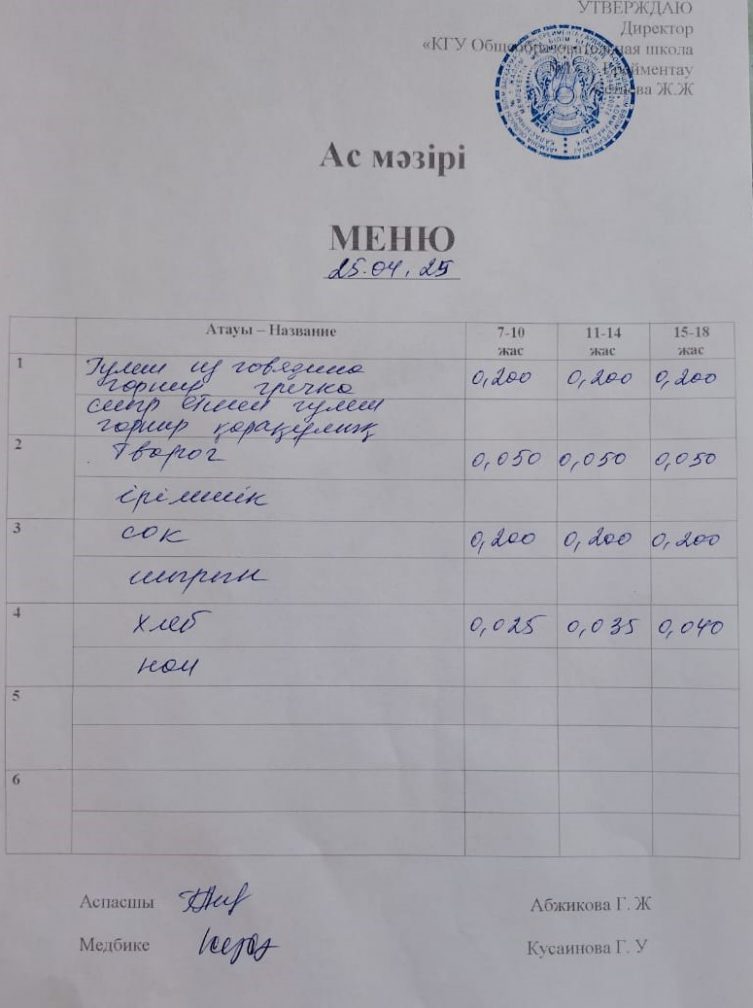 УТВЕРЖДАЮ
Директор
«КГУ Общеобразовательная школа
Ж.Ж
Ас мәзірі
МЕНЮ
25.04.25
Атауы – Название 7-10 жас 11-14 жас 15-18 жас
1 Гуляш из говядина 0,200 0,200 0,200
горнир гречка
сиыр етінен гуляш
горнир қарақұмық
2 Творог 0,050 0,050 0,050
ірімшік
3 сок 0,200 0,200 0,200
шырын
4 хлеб 0,025 0,035 0,040
нан
5
6
Аспасшы Абжикова Г. Ж
Медбике Кусаинова Г. У